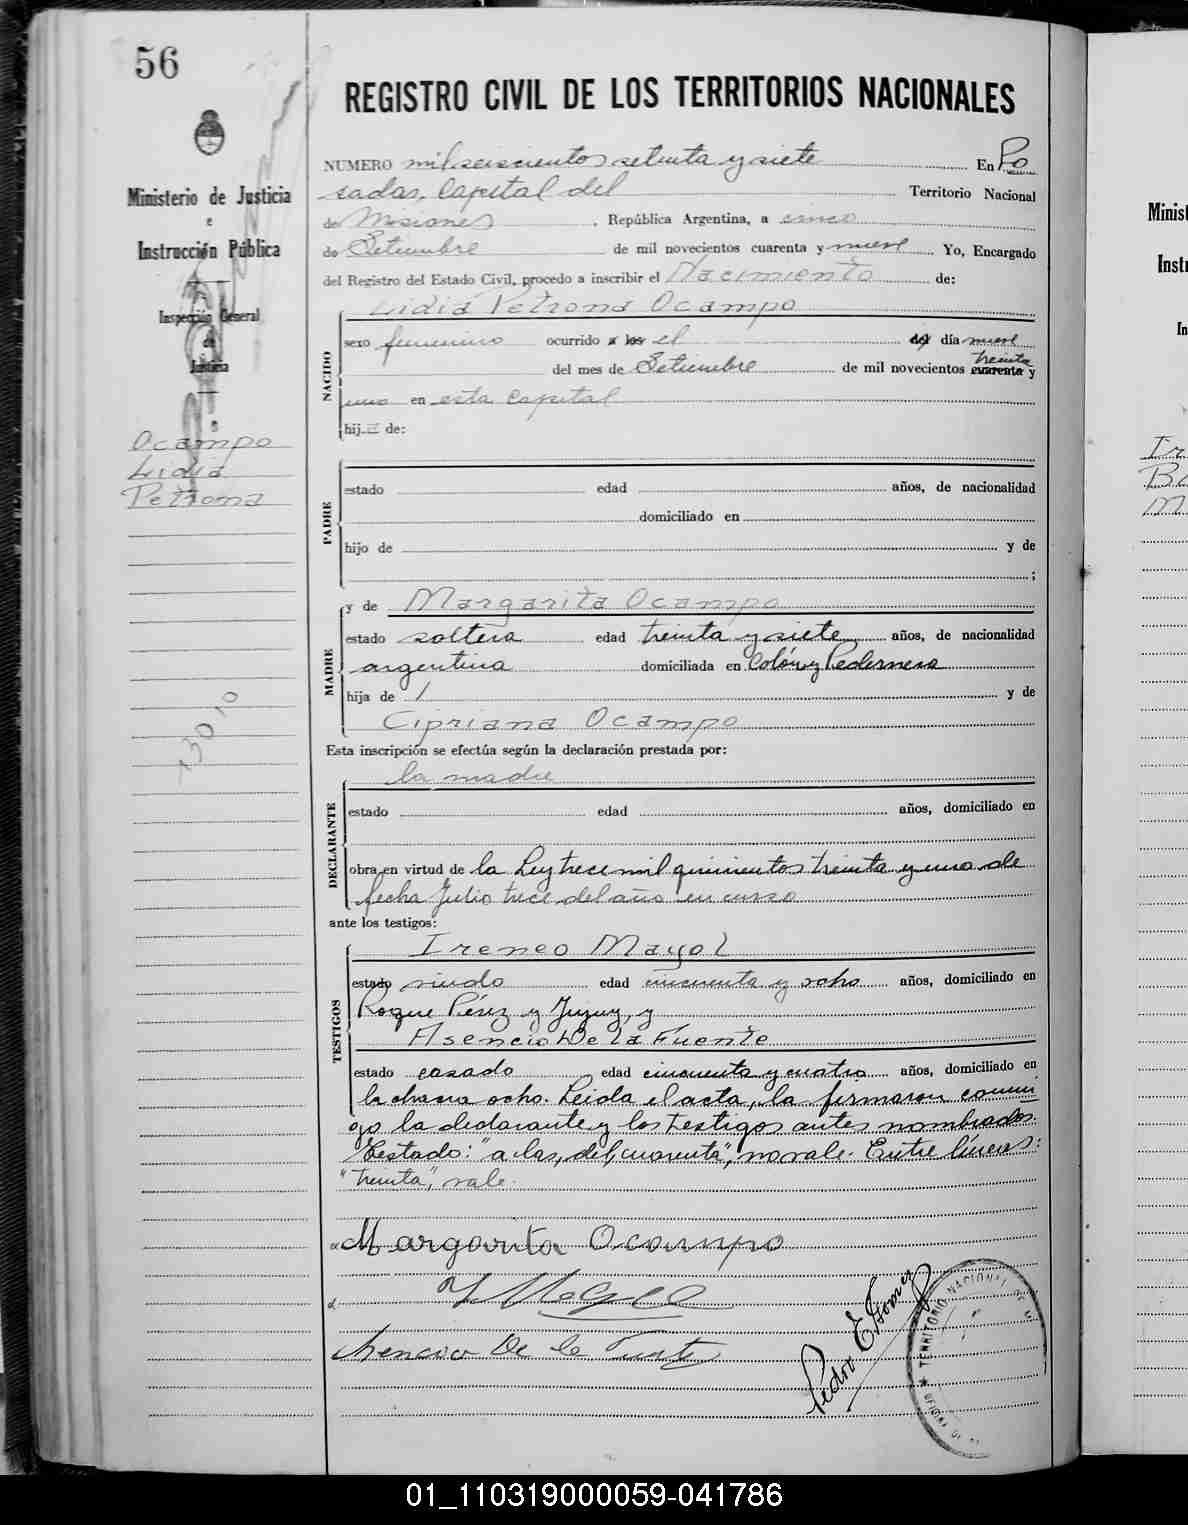 56
REGISTRO CIVIL DE LOS TERRITORIOS NACIONALES
Ministerio de Justicia
e
Instrucción Pública
Inspección General
de
Justicia
Ocampo
Lidia
Petrona
NUMERO mil seiscientos setenta y siete En Po
sadas, Capital del Territorio Nacional
de Misiones, República Argentina, a cinco
de Setiembre de mil novecientos cuarenta y nueve Yo, Encargado
del Registro del Estado Civil, procedo a inscribir el Nacimiento de:
Lidia Petrona Ocampo
NACIDO
sexo femenino ocurrido a las el del día nueve
del mes de Setiembre de mil novecientos cuarenta y
treinta
uno en esta Capital
hij a de:
PADRE
estado edad años, de nacionalidad
domiciliado en
hijo de y de
;
y de Margarita Ocampo
MADRE
estado soltera edad treinta y siete años, de nacionalidad
argentina domiciliada en Colón y Pedernera
hija de / y de
Cipriana Ocampo
Esta inscripción se efectúa según la declaración prestada por:
la madre
DECLARANTE
estado edad años, domiciliado en
obra en virtud de la Ley trece mil quinientos treinta y uno de
fecha Julio trece del año en curso
ante los testigos:
Ireneo Mayol
TESTIGOS
estado viudo edad cincuenta y ocho años, domiciliado en
Roque Pérez y Jujuy, y
Asencio De la Fuente
estado casado edad cincuenta y cuatro años, domiciliado en
la chacra ocho. Leida el acta, la firmaron conmi
go la declarante y los testigos antes nombrados.
Testado: "a las, del, cuarenta", no vale. Entre líneas:
"treinta", vale.
Margarita Ocampo
Asencio De la Fuente
Pedro E. Gomez
TERRITORIO NACIONAL DE M
01_110319000059-041786